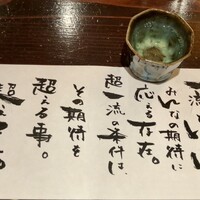 みんなの期待に
応える存在。
超一流の条件は、
その期待を
超える事。